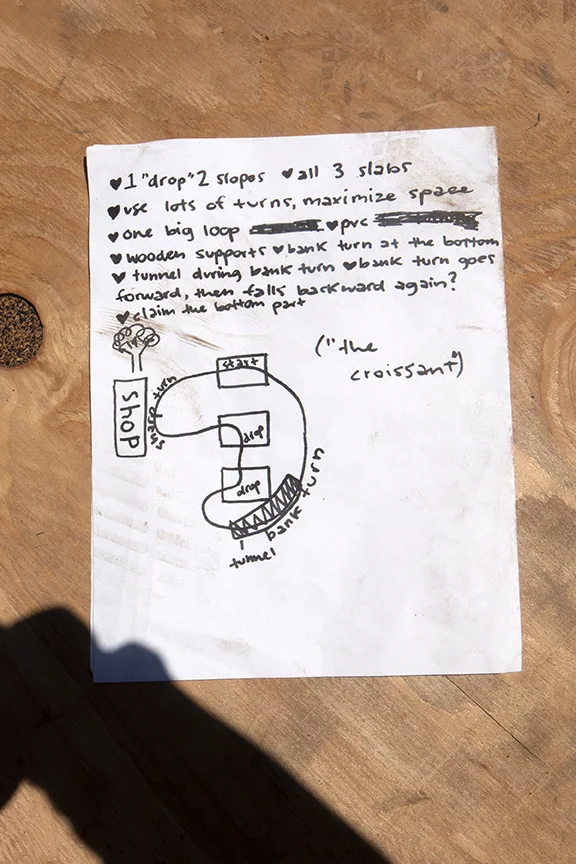 ♥ 1 "drop" 2 slopes ♥ all 3 slabs
♥ use lots of turns, maximize space
♥ one big loop ♥ pvc
♥ wooden supports ♥ bank turn at the bottom
♥ tunnel during bank turn ♥ bank turn goes
forward, then falls backward again?
♥ claim the bottom part
("the
croissant")
start
sharp turn
shop
drop
drop
bank turn
tunnel